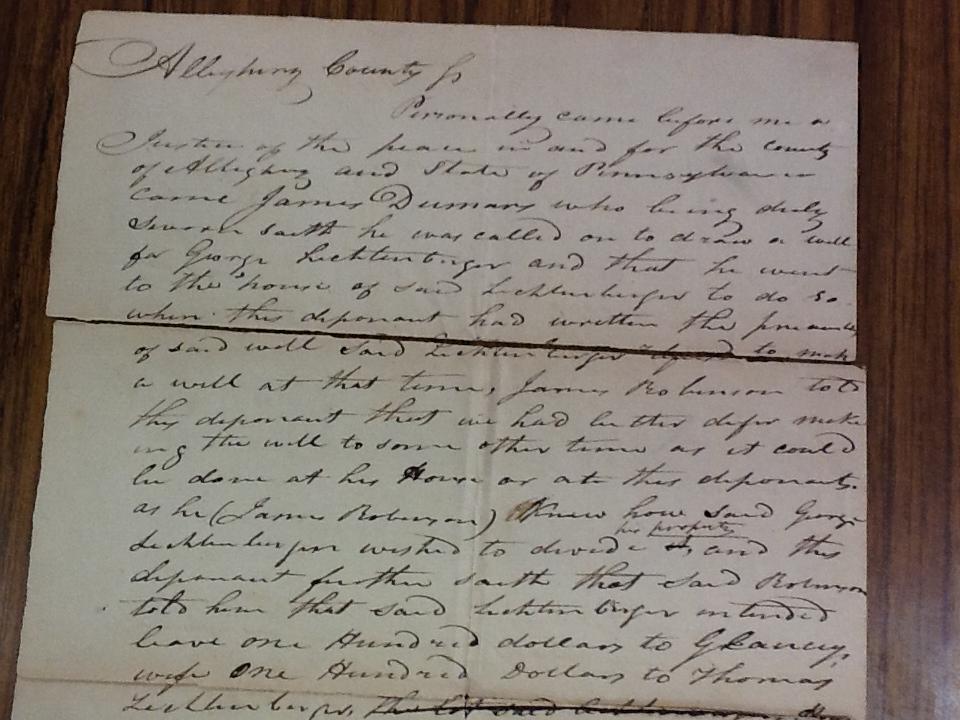 Allegheny County Ss
Personally came before me a
Justice of the peace in and for the county
of Alleghny and State of Pennsylvania
came James Dumars who being duly
Sworn saith he was called on to draw a will
for George Lechtenberger and that he went
to the house of said Lechtenberger to do so
when this deponant had written the
of said will said Lechtenberger to make
a will at that time, James Robinson told
this deponant that we had better defer make
ing the will to some other time as it could
be done at his House or at this deponants
as he (James Robinson) Knew how said George
Lechtenberger wished to divide his property and this
deponant further saith that said Robinson
told him that said Lechtenberger intended
leave one Hundred dollars to
wife One Hundred Dollars to Thomas
Lechtenberger